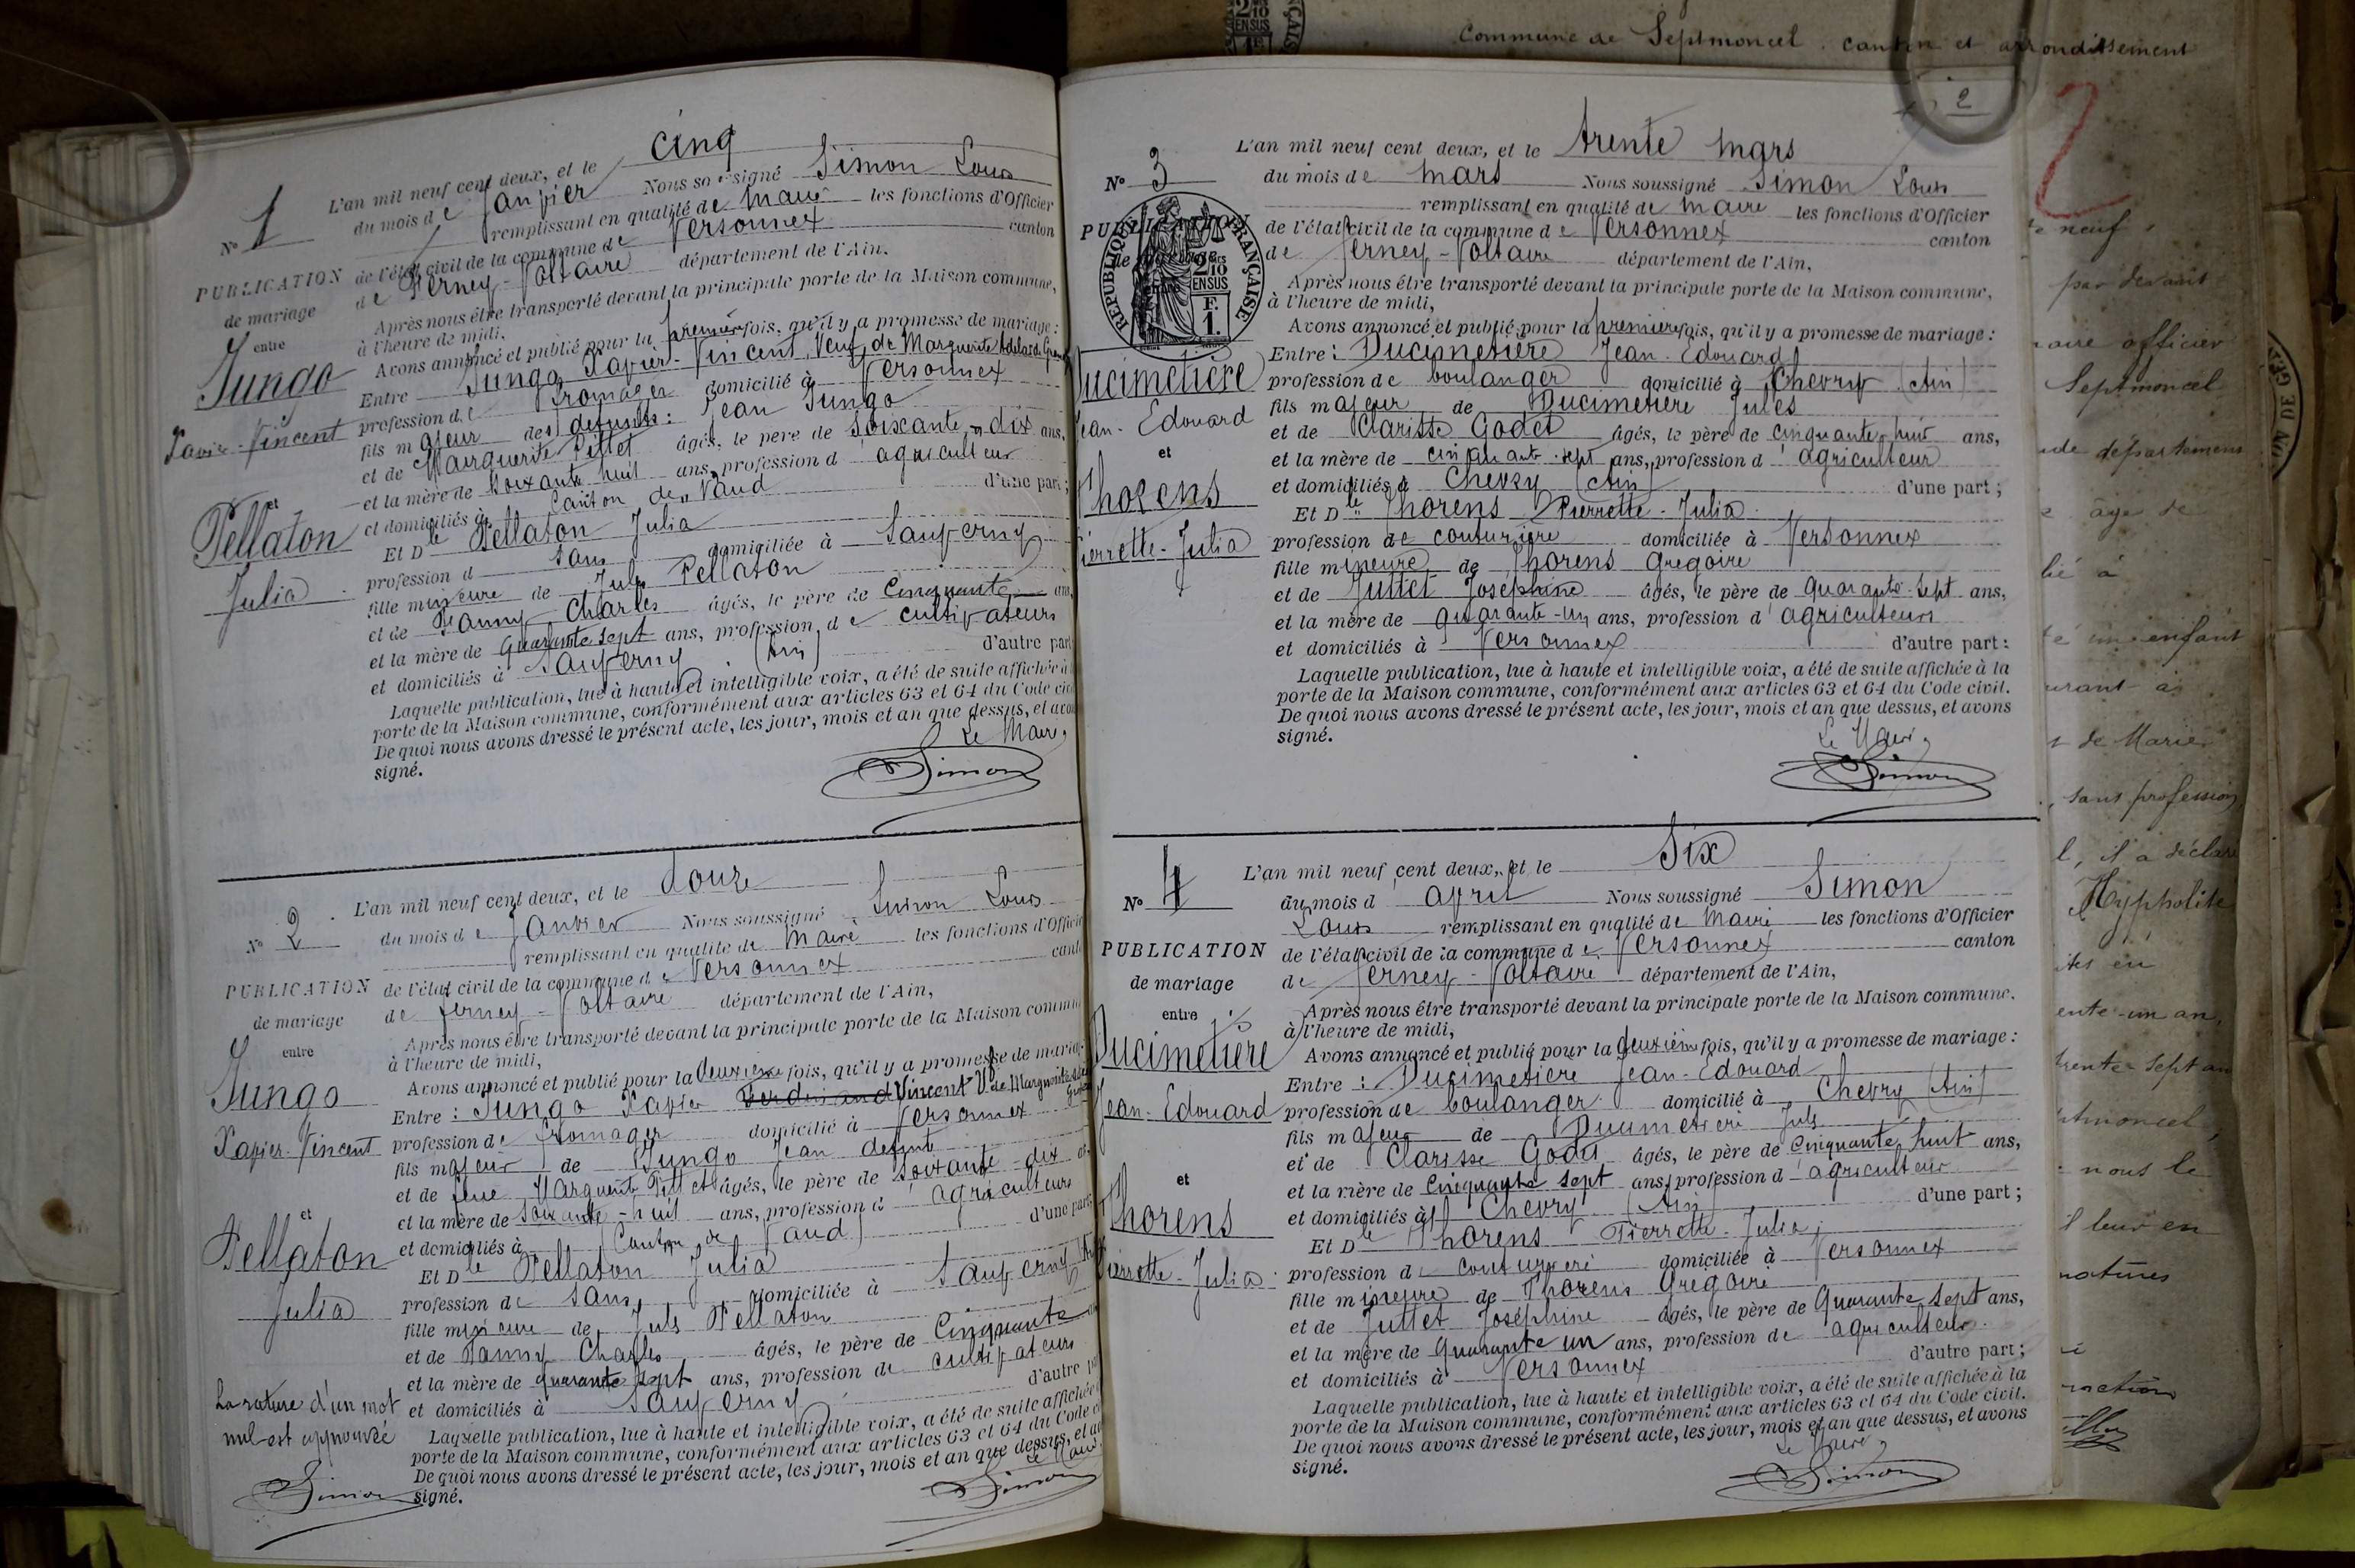 Commune de Septmoncel. canton et arrondissement
cinq
L'an mil neuf cent deux, et le
du mois de Janvier Nous soussigné Simon Louis
remplissant en qualité de maire les fonctions d'Officier
N° 1
de l'état civil de la commune de Versonnex canton
PUBLICATION
de Ferney-Voltaire département de l'Ain.
de mariage
Après nous être transporté devant la principale porte de la Maison commune,
à l'heure de midi,
entre
Avons annoncé et publié pour la première fois, qu'il y a promesse de mariage :
Jungo
Entre Jungo Xavier-Vincent, Veuf de Marguerite
profession de Fromager domicilié à Versonnex
Xavier-Vincent
fils majeur de défunts : Jean Jungo
et de Marguerite Pittet âgés, le père de Soixante-dix ans,
et la mère de soixante huit ans, profession d'agriculteur
et domiciliés à Canton de Vaud d'une part ;
et
Pellaton
Et Dlle Pellaton Julia
profession d sans domiciliée à Sauverny
Julia
fille mineure de Jules Pellaton
et de Fanny Charles âgés, le père de Cinquante ans,
et la mère de Quarante sept ans, profession de cultivateurs
et domiciliés à Sauverny (Ain) d'autre part
Laquelle publication, lue à haute et intelligible voix, a été de suite affichée à
porte de la Maison commune, conformément aux articles 63 et 64 du Code civ
De quoi nous avons dressé le présent acte, les jour, mois et an que dessus, et avons
signé.
Le Maire,
Simon
L'an mil neuf cent deux, et le douze
N° 2
du mois de Janvier Nous soussigné Simon Louis
remplissant en qualité de Maire les fonctions d'Officier
PUBLICATION
de l'état civil de la commune de Versonnex cant
de mariage
de Ferney-Voltaire département de l'Ain,
Après nous être transporté devant la principale porte de la Maison commune
entre
à l'heure de midi,
Avons annoncé et publié pour la deuxième fois, qu'il y a promesse de mariage
Jungo
Entre : Jungo Xavier Vincent Vf de Marguerite
Xavier-Vincent
profession de fromager domicilié à Versonnex
fils majeur de Jungo Jean défunt
et de feue Marguerite Pittet âgés, le père de soixante-dix
et la mère de soixante-huit ans, profession d'agriculteurs
et
et domiciliés à (Canton de Vaud) d'une part
Pellaton
Et Dlle Pellaton Julia
Julia
profession de sans domiciliée à Sauverny
fille mineure de Juls Pellaton
et de Fanny Charles âgés, le père de Cinquante
et la mère de quarante sept ans, profession de cultivateurs
et domiciliés à Sauverny d'autre
La rature d'un mot
nul est approuvée
Simon
Laquelle publication, lue à haute et intelligible voix, a été de suite affichée
porte de la Maison commune, conformément aux articles 63 et 64 du Code
De quoi nous avons dressé le présent acte, les jour, mois et an que dessus, et
signé.
Le Maire
Simon
2
L'an mil neuf cent deux, et le trente mars
N° 3
du mois de mars Nous soussigné Simon Louis
remplissant en qualité de maire les fonctions d'Officier
PUBLICATION
RÉPUBLIQUE FRANÇAISE
2/10 EN SUS
F.
1.
de l'état civil de la commune de Versonnex canton
de Ferney-Voltaire département de l'Ain,
Après nous être transporté devant la principale porte de la Maison commune,
à l'heure de midi,
Avons annoncé et publié pour la première fois, qu'il y a promesse de mariage :
Ducimetière
Entre : Ducimetière Jean-Edouard
profession de boulanger domicilié à Chevry (Ain)
Jean-Edouard
fils majeur de Ducimetière Jules
et de Clarisse Godet âgés, le père de cinquante huit ans,
et
et la mère de cinquante sept ans, profession d'agriculteur
et domiciliés à Chevry (Ain) d'une part ;
Thorens
Et Dlle Thorens Pierrette-Julia
Pierrette-Julia
profession de couturière domiciliée à Versonnex
fille mineure de Thorens Grégoire
et de Juttet Joséphine âgés, le père de Quarante-Sept ans,
et la mère de quarante-un ans, profession d'agriculteurs
et domiciliés à Versonnex d'autre part :
Laquelle publication, lue à haute et intelligible voix, a été de suite affichée à la
porte de la Maison commune, conformément aux articles 63 et 64 du Code civil.
De quoi nous avons dressé le présent acte, les jour, mois et an que dessus, et avons
signé.
Le Maire,
Simon
L'an mil neuf cent deux, et le Six
N° 4
du mois d'avril Nous soussigné Simon
Louis remplissant en qualité de Maire les fonctions d'Officier
PUBLICATION
de l'état civil de la commune de Versonnex canton
de mariage
de Ferney-Voltaire département de l'Ain,
entre
Après nous être transporté devant la principale porte de la Maison commune.
à l'heure de midi,
Ducimetière
Avons annoncé et publié pour la deuxième fois, qu'il y a promesse de mariage :
Entre : Ducimetière Jean-Edouard
Jean-Edouard
profession de boulanger domicilié à Chevry (Ain)
fils majeur de Ducimetière Juls
et de Clarisse Godet âgés, le père de Cinquante huit ans,
et
et la mère de Cinquante sept ans, profession d'agriculteur
et domiciliés à Chevry (Ain) d'une part ;
Thorens
Et Dlle Thorens Pierrette-Julia,
Pierrette-Julia
profession de couturière domiciliée à Versonnex
fille mineure de Thorens Grégoire
et de Juttet Joséphine âgés, le père de Quarante sept ans,
et la mère de Quarante un ans, profession de agriculteur
et domiciliés à Versonnex d'autre part ;
Laquelle publication, lue à haute et intelligible voix, a été de suite affichée à la
porte de la Maison commune, conformément aux articles 63 et 64 du Code civil.
De quoi nous avons dressé le présent acte, les jour, mois et an que dessus, et avons
signé.
Le Maire,
Simon
2
neuf
par devant
officier
Septmoncel
département
âge de
à
enfant
de Marie
, sans profession
l, il a déclaré
Hyppholite
ente-un an,
trente sept an
nous le
il leur en